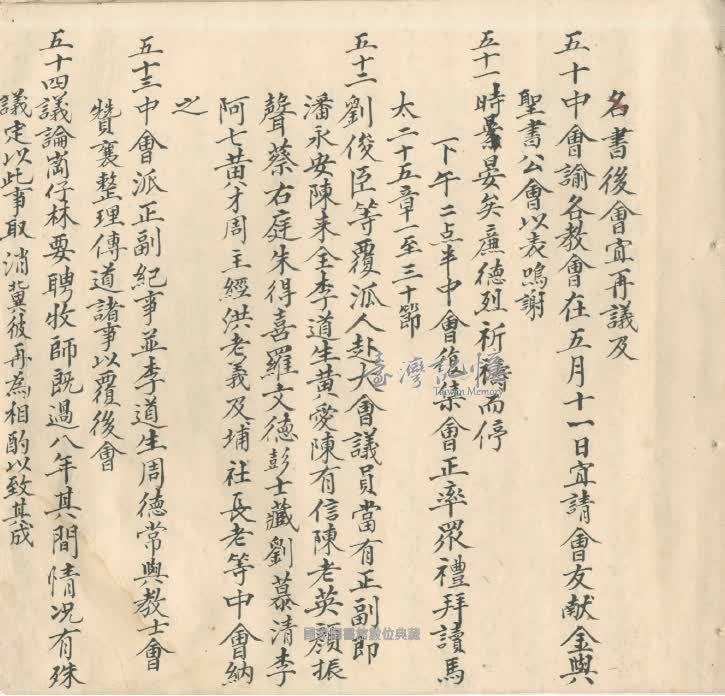 名書後會宜再議及
五十中會諭各教會在五月十一日宜請會友献金與
聖書公會以表鳴謝
五十一時晏矣廉德烈祈禱而停
下午二点半中會復集會正率眾禮拜讀馬
太二十五章一至三十節
五十二劉俊臣等覆派人赴大會議員當有正副即
潘永安陳来全李道生黄愛陳有信陳老英顏振
聲蔡右庭朱得喜羅文德彭士藏劉慕清李
阿七黄八才周主經洪老義及埔社長老等中會納
之
五十三中會派正副紀事並李道生周德常與教士會
贊襄整理傳道諸事以覆後會
五十四議論崗仔林要聘牧師既過八年其間情况有殊
議定以此事取消冀彼再為相酌以致其成
臺灣記憶
Taiwan Memory
國家圖書館數位典藏